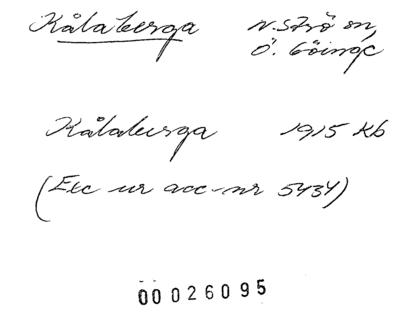 Kålaberga N. Strö sn,
Ö. Göinge
Kålaberga 1915 Kb
(Exc ur acc-nr 5434)
00026095